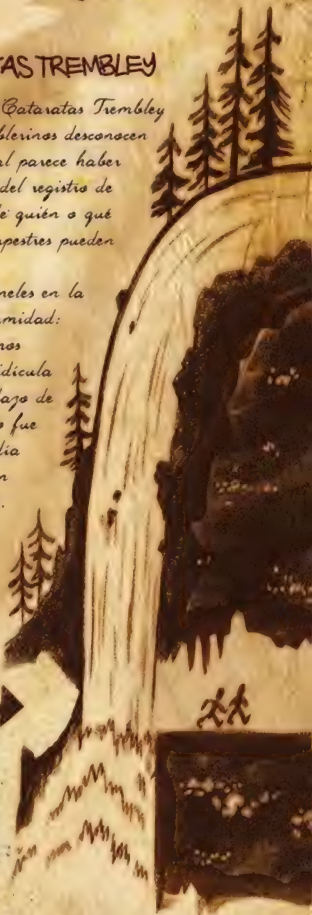 TAS TREMBLEY
Cataratas Trembley
blerinos desconocen
al parece haber
del registro de
de quién o qué
mpestres pueden
neles en la
midad:
nos
idícula
lazo de
o fue
día
n